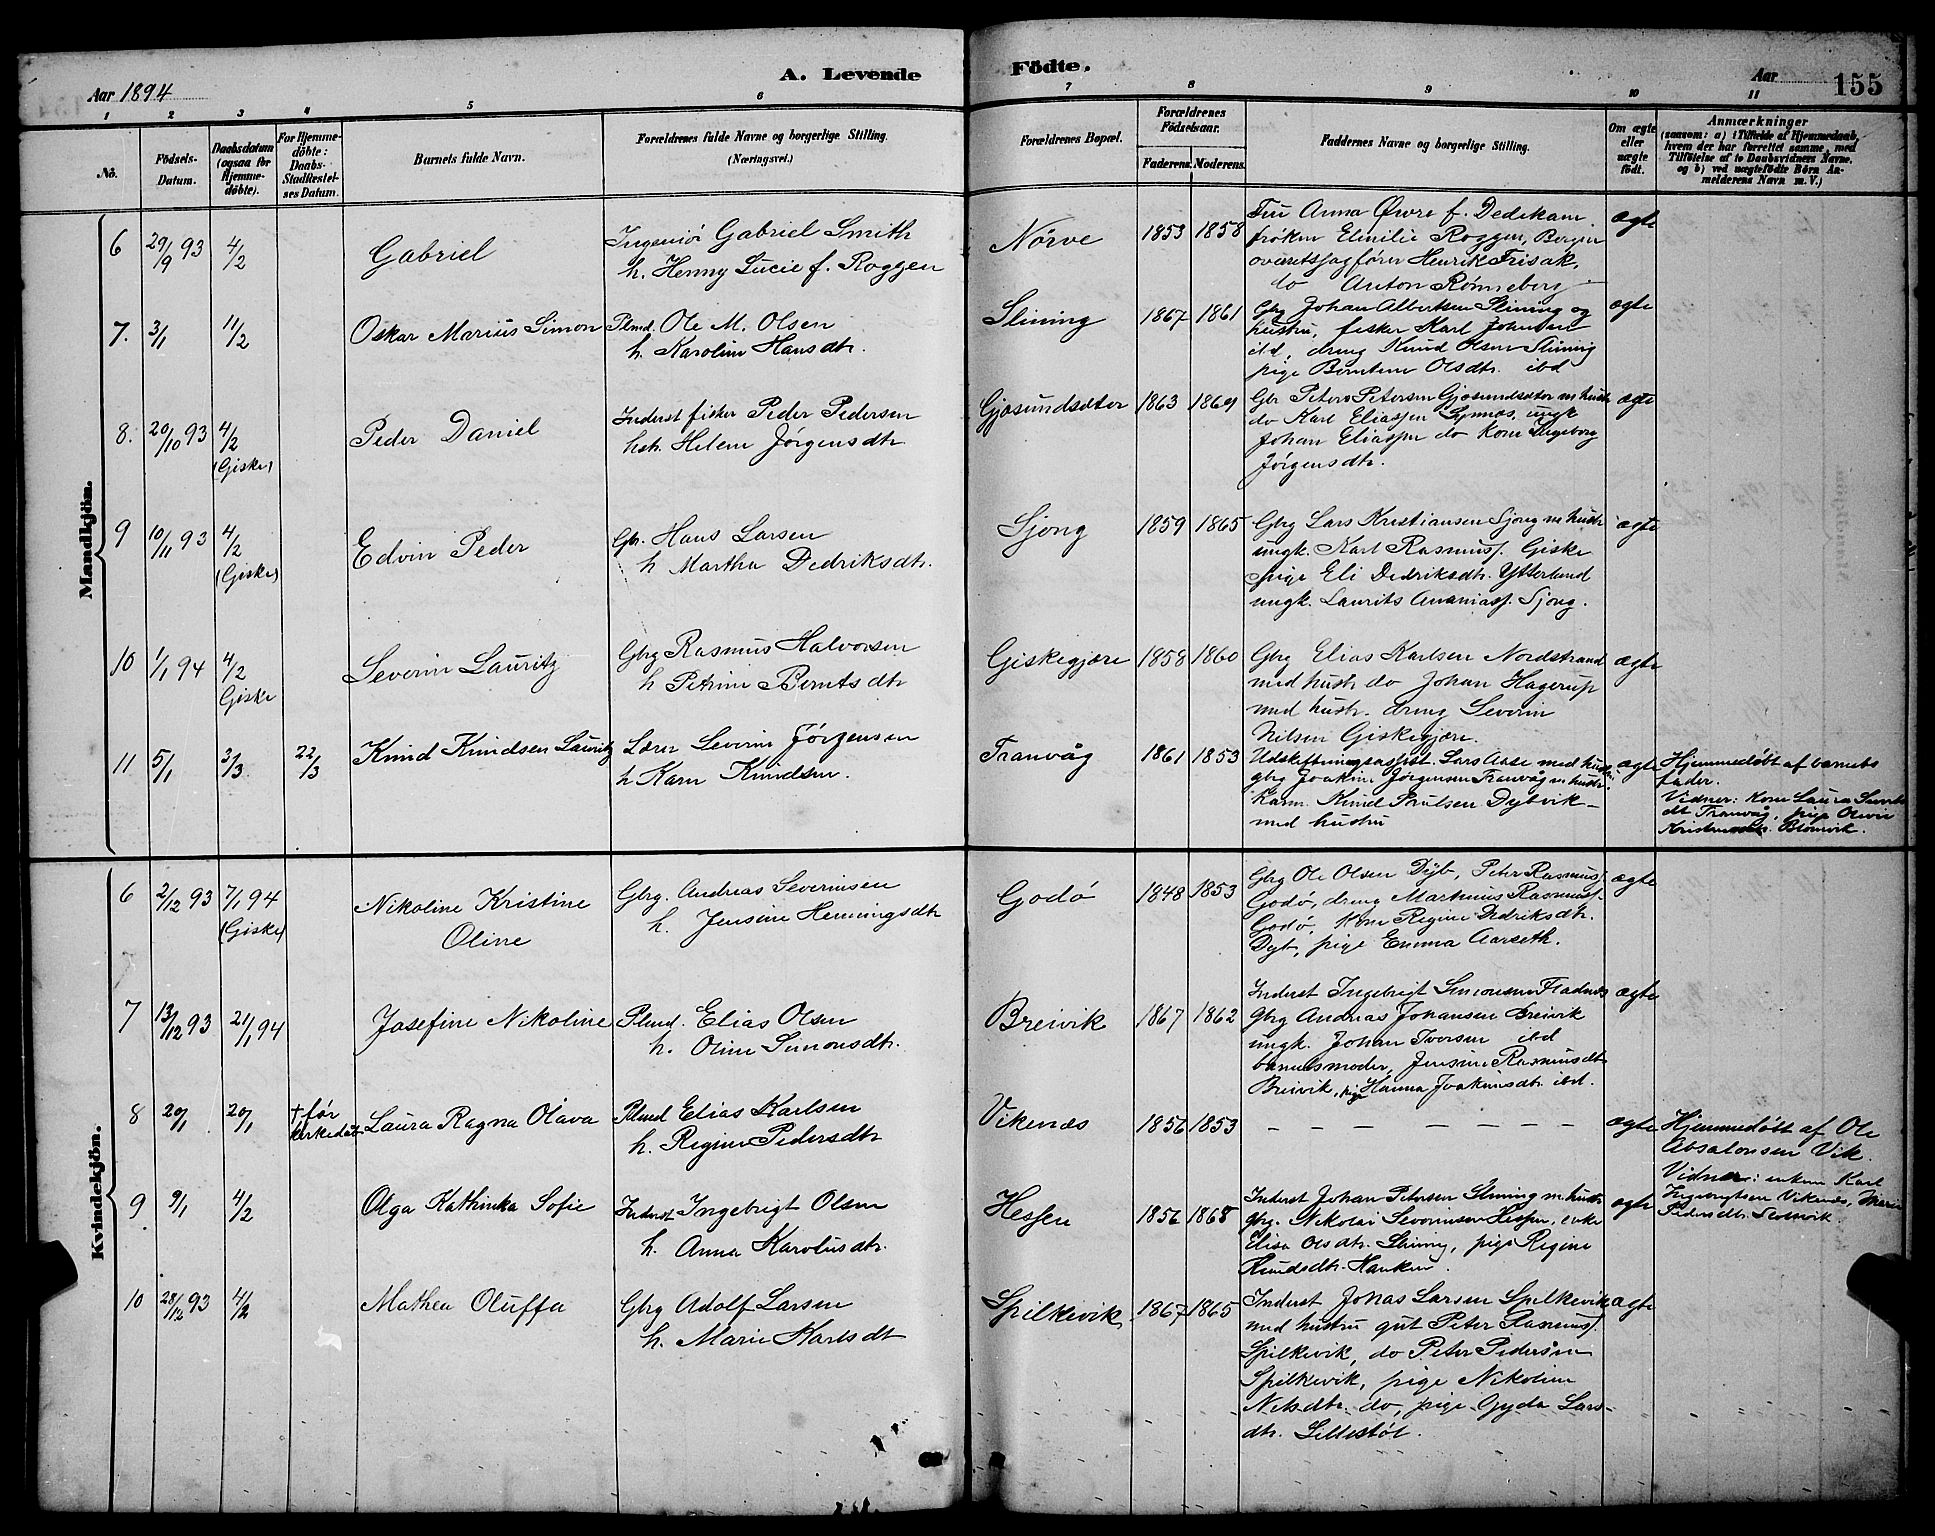 A. Levende Födte.
Aar 1894
Aar
155
1 2 3 4 5 6 7 8 9 10 11
No.
Födsels-Datum.
Daabsdatum (ogsaa for Hjemmedöbte).
For Hjemmedöbte: Daabs-Stadfestelses Datum.
Barnets fulde Navn.
Forældrenes fulde Navne og borgerlige Stilling.
(Næringsvei.)
Forældrenes Bopæl.
Forældrenes Födselsaar.
Faderens. Moderens.
Faddernes Navne og borgerlige Stilling.
Om ægte eller uægte födt.
Anmærkninger
(saasom: a) i Tilfælde af Hjemmedaab, hvem der har forrettet samme, med Tilföielse af to Daabsvidners Navne, og b) ved uægtefödte Börn Anmelderens Navn m. V.)
Mandkjön.
6 29/9 93 4/2 Gabriel
Ingeniör Gabriel Smith
h. Henny Lucie f. Roggen
Nörve 1853 1858
Fru Anna Øwre f. Dedekam
fröken Emilie Roggen, Bergen
overretssagförer Henrik Frisak,
do Anton Rönneberg
ægte
7. 3/1 11/2 Oskar Marius Simon
Plmd. Ole M. Olsen
h. Karoline Hansdtr.
Slining 1867 1861
Gbr Johan Albertsen Slining og
hustru, fisker Karl Johansen
ibd, dreng Knud Olsen Slining
pige Berntine Olsdtr. ibd
ægte
8. 20/10 93 4/2 (Giske) Peder Daniel
Inderst fisker Peder Pedersen
hstr. Helene Jörgensdtr
Gjösundsæter 1863 1869
Gbr Peter Petersen Gjösundsæter m hustr
do Karl Eliassen ungk
Johan Eliassen do Kone Ingeborg
Jörgensdtr.
ægte
9 10/11 93 4/2 (Giske) Edvin Peder
Gbr. Hans Larsen
h Martha Dedriksdtr.
Sjong 1859 1865
Gbrg Lars Kristiansen Sjong m hustr
ungk. Karl Rasmuss. Giske
pige Eli Dedriksdtr. Ytterland
ungk. Laurits Ananiass. Sjong.
ægte
10 1/1 94 4/2 Giske Severin Lauritz
Gbrg Rasmus Halvorsen
h Petrine Berntsdtr
Giskegjære 1858 1860
Gbrg Elias Karlsen Nordstrand
med hustr. do Johan Hagerup
med hustr. dreng Severin
Nilsen Giskegjære.
ægte
11 5/1 3/3 22/3 Knud Knudsen Lauritz
Lærer Severin Jörgensen
h Karn Knudsen.
Tranvåg 1861 1853
Udskiftningsassist. Lars Aase med hustru
gbrg Joakim Jörgensen Tranvåg m hustr.
Knud Poulsen Dybvik
med hustru
ægte
Hjemmedöbt af barnets
fader.
Vidner: Kone Laura
dt Tranvåg, pige Olevie
Blomvik.
Kvindekjön.
6 2/12 93 7/1 94 (Giske) Nikoline Kristine
Oline
Gbrg. Andreas Severinsen
h. Jensine Henningsdtr
Godö 1848 1853
Gbrg Ole Olsen Dyb, Peter Rasmuss.
Godö, dreng Martinus Rasmuss.
Godö, Kone Regine Dedriksdtr.
Dyb, pige Emma Aarseth.
ægte
7 13/12 93 21/1 94 Josefine Nikoline
Plmd. Elias Olsen
h. Oline Simonsdtr.
Breivik 1867 1862
Inderst Ingebrigt Simonsen Fladnes
Gbrg Andreas Johansen Breivik
ungk. Johan Iversen ibd
barnets moder, Jensine Rasmusdtr
Breivik, pige Hanna Joakimsdtr ibd.
ægte
8 20/1 20/1 † för kirkedåb Laura Ragna Olava
Plmd Elias Karlsen
h. Regine Pedersdtr
Vikenæs 1856 1853
– – – – – – – –
ægte
Hjemmedöbt af Ole
Absalonsen Vik.
Vidner: enkem Karl
Ingebrigtsen Vikenæs, Marie
Pedersdtr.
9 9/1 4/2 Olga Kathinka Sofie
Inderst Ingebrigt Olsen
h. Anna Karolusdtr.
Hessen 1856 1868
Inderst Johan Petersen Slining m hustr
gbrg. Nikolai Severinsen Hessen, enke
Elisa Olsdtr. Slining, pige Regine
Knudsdtr. Hanken.
ægte
10 28/12 93 4/2 Mathea Oluffa
Gbrg Adolf Larsen
h. Marie Karlsdt
Spilkevik 1867 1865
Inderst Jonas Larsen Spilkevik
med hustru gut Peter Rasmuss.
Spilkevik, do Peter Pedersen
Spilkevik, pige Nikoline
Nilsdtr. do, pige Gyda Lars-
dtr. Lillestöl.
ægte